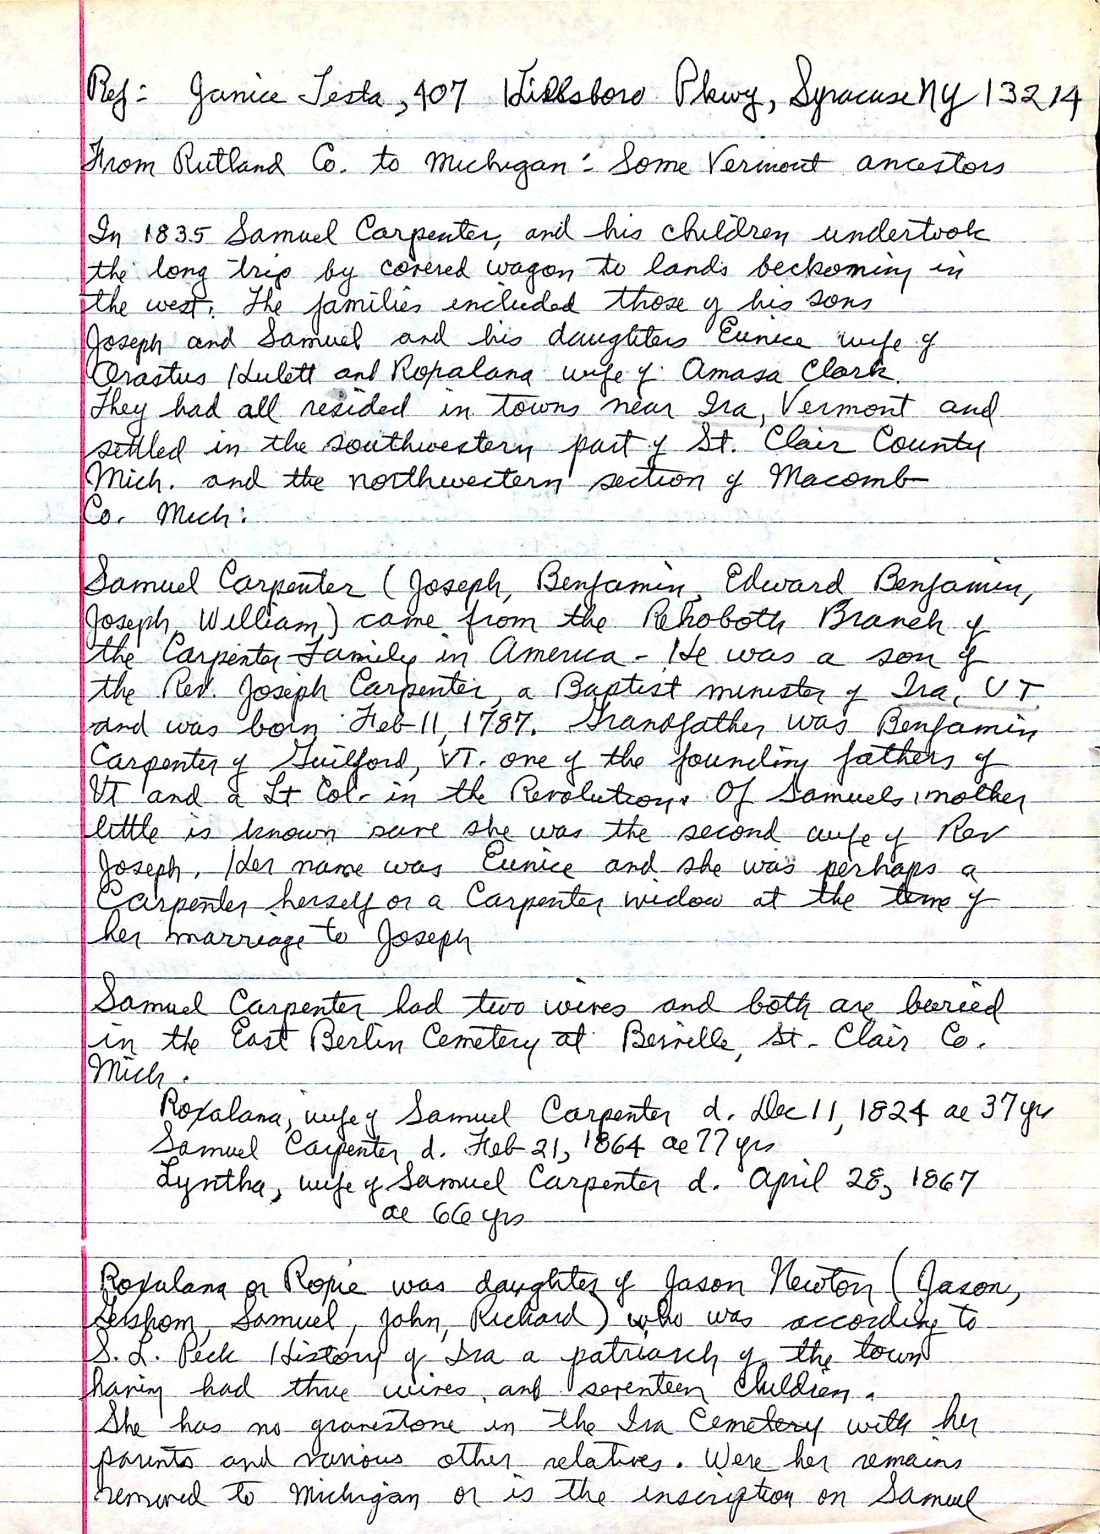 Ref: Janice Testa, 407 Hillsboro Pkwy, Syracuse NY 13214
From Rutland Co. to Michigan: Some Vermont ancestors
In 1835 Samuel Carpenter, and his children undertook
the long trip by covered wagon to lands beckoming in
the west. The families included those of his sons
Joseph and Samuel and his daughters Eunice wife of
Orastus Hulett and Roxalana wife of Amasa Clark.
They had all resided in towns near Ira, Vermont and
settled in the southwestern part of St. Clair County
Mich. and the northwestern section of Macomb
Co. Mich:
Samuel Carpenter (Joseph, Benjamin, Edward Benjamin,
Joseph, William) came from the Rehoboth Branch of
the Carpenter Family in America - He was a son of
the Rev. Joseph Carpenter, a Baptist minister of Ira, VT
and was born Feb 11, 1787. Grandfather was Benjamin
Carpenter of Guilford, VT. one of the founding fathers of
VT and a Lt Col. in the Revolution. Of Samuels mother
little is known save she was the second wife of Rev
Joseph. Her name was Eunice and she was perhaps a
Carpenter herself or a Carpenter widow at the time of
her marriage to Joseph
Samuel Carpenter had two wives and both are buried
in the East Berlin Cemetery at Berville, St. Clair Co.
Mich.
Roxalana, wife of Samuel Carpenter d. Dec 11, 1824 ae 37 yrs
Samuel Carpenter d. Feb 21, 1864 ae 77 yrs
Lyntha, wife of Samuel Carpenter d. April 28, 1867
ae 66 yrs
Roxalana or Roxie was daughter of Jason Newton (Jason,
Samuel, John, Richard) who was according to
S. L. Peck History of Ira a patriarch of the town
having had three wives and seventeen children.
She has no gravestone in the Ira Cemetery with her
parents and various other relatives. Were her remains
removed to Michigan or is the inscription on Samuel